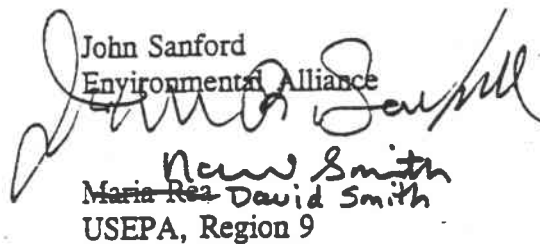 John Sanford
Environmental Alliance
Smith
Maria Rea David Smith
USEPA, Region 9